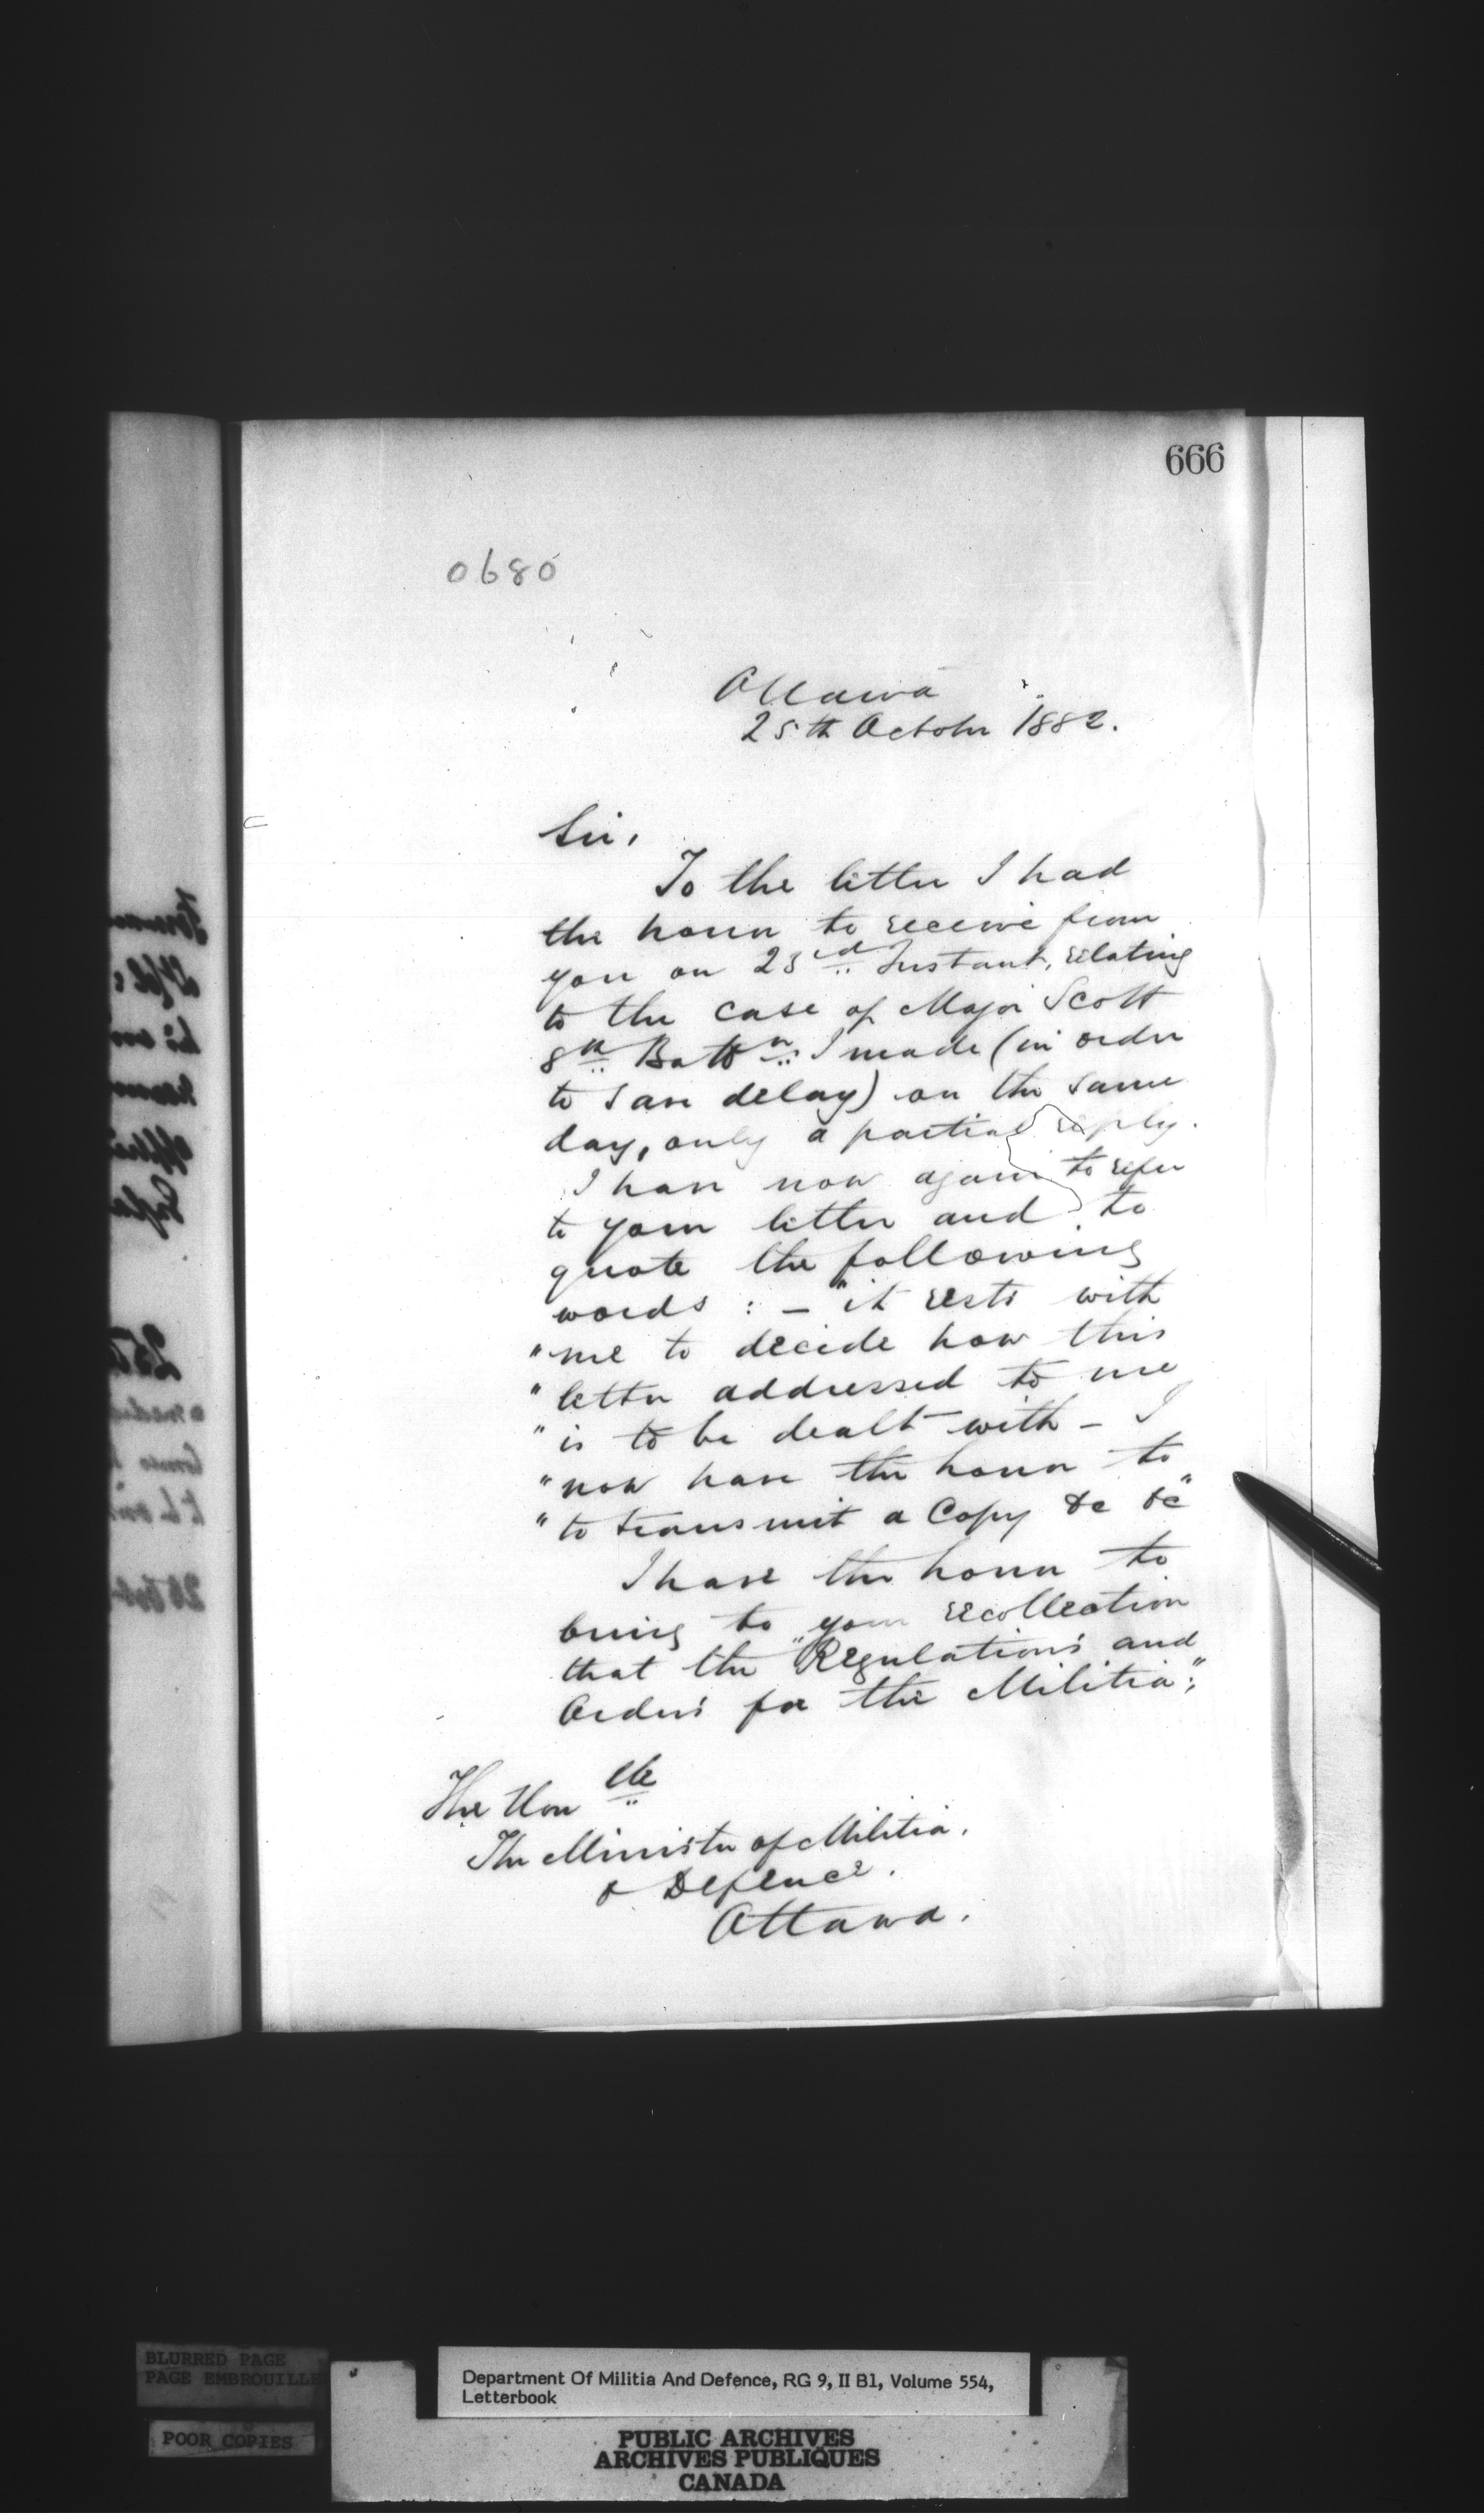 666
0680
Ottawa
25th October 1882.
Sir,
To the letter I had
the honor to receive from
you on 23rd Instant, relating
to the case of Major Scott
8th Battn I made (in order
to save delay) on the same
day, only a partial reply.
I have now again to refer
to your letter and to
quote the following
words : — "it rests with
"me to decide how this
"letter addressed to me
"is to be dealt with – I
"now have the honor to
"to transmit a Copy &c &c"
I have the honor to
bring to your recollection
that the "Regulations and
Orders for the Militia";
The Honble
The Minister of Militia.
& Defence.
Ottawa.
BLURRED PAGE
PAGE EMBROUILLE
POOR COPIES
Department Of Militia And Defence, RG 9, II B1, Volume 554,
Letterbook
PUBLIC ARCHIVES
ARCHIVES PUBLIQUES
CANADA